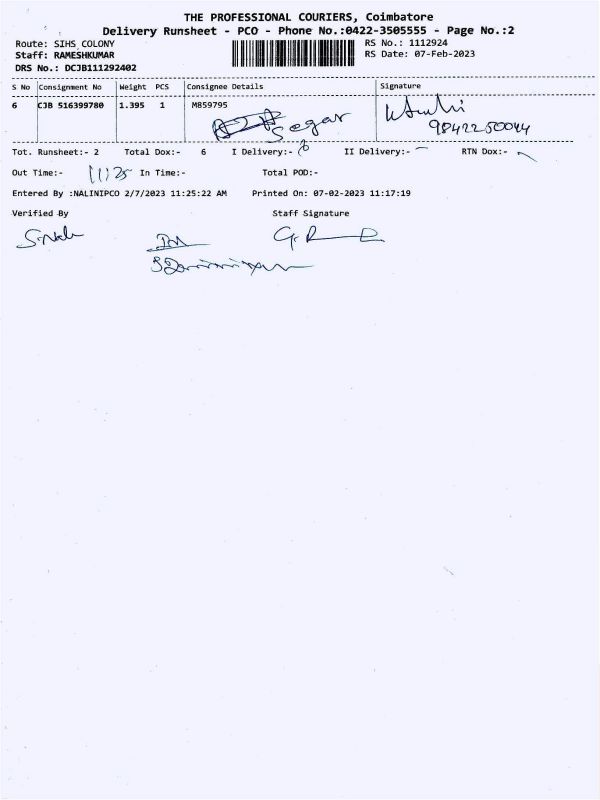 THE PROFESSIONAL COURIERS, Coimbatore
Delivery Runsheet - PCO - Phone No.:0422-3505555 - Page No.:2
Route: SIHS COLONY
RS No.: 1112924
Staff: RAMESHKUMAR
RS Date: 07-Feb-2023
DRS No.: DCJB111292402
S No Consignment No Weight PCS Consignee Details Signature
6 CJB 516399780 1.395 1 M859795
Segar
9842250044
Tot. Runsheet:- 2 Total Dox:- 6 I Delivery:- 6 II Delivery:- RTN Dox:-
Out Time:- 11 25 In Time:- Total POD:-
Entered By :NALINIPCO 2/7/2023 11:25:22 AM Printed On: 07-02-2023 11:17:19
Verified By Staff Signature